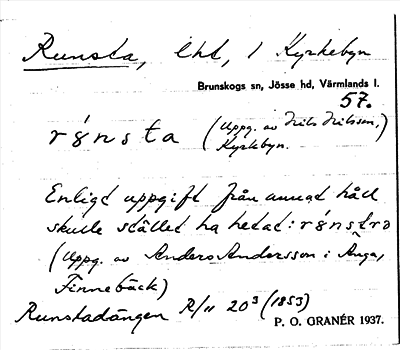 Runsta, lht, / Kyrkebyn
Brunskogs sn, Jösse hd, Värmlands l.
57.
rɤnsta (Uppg. av Nils Nilsson,)
Kyrkebyn.
Enligt uppgift från annat håll
skulle stället ha hetat: rɤnstra
(Uppg. av Anders Andersson i Änga,
Finnebäck)
Runstadängen R/11 20³ (1853)
P. O. GRANÉR 1937.